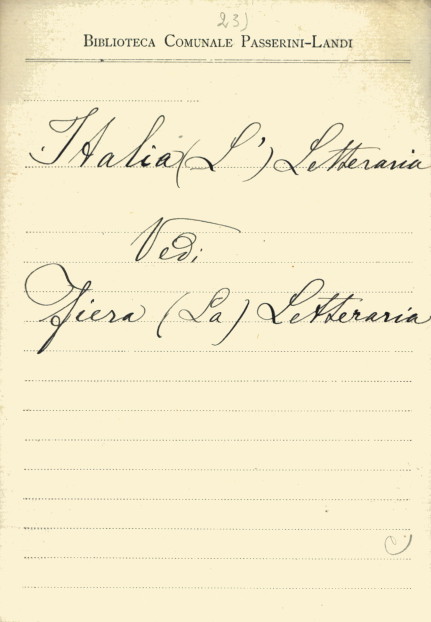 23)
Biblioteca Comunale Passerini-Landi
Italia (L') Letteraria
Vedi
Fiera (La) Letteraria